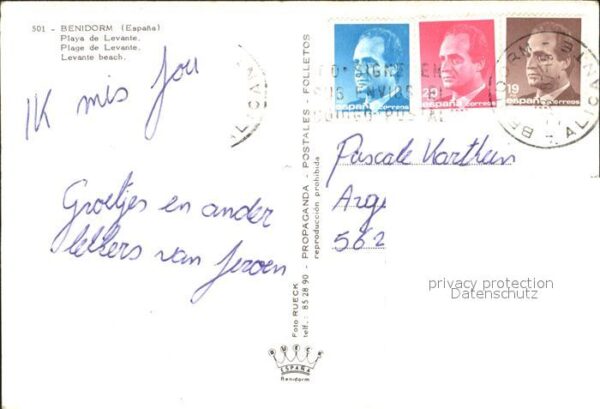 501 - BENIDORM (España)
Playa de Levante.
Plage de Levante.
Levante beach.
IK mis jou
Groetjes en ander
lekkers van Jeroen
Foto RUECK
telf.: 85 28 90 - PROPAGANDA - POSTALES - FOLLETOS
reproducción prohibida
RUECK
ESPAÑA
Benidorm
españa correos
20
españa correos
19
españa correos
ALICANTE
CODIGO POSTAL
ALICANTE
Pascale
Arge
562
privacy protection
Datenschutz